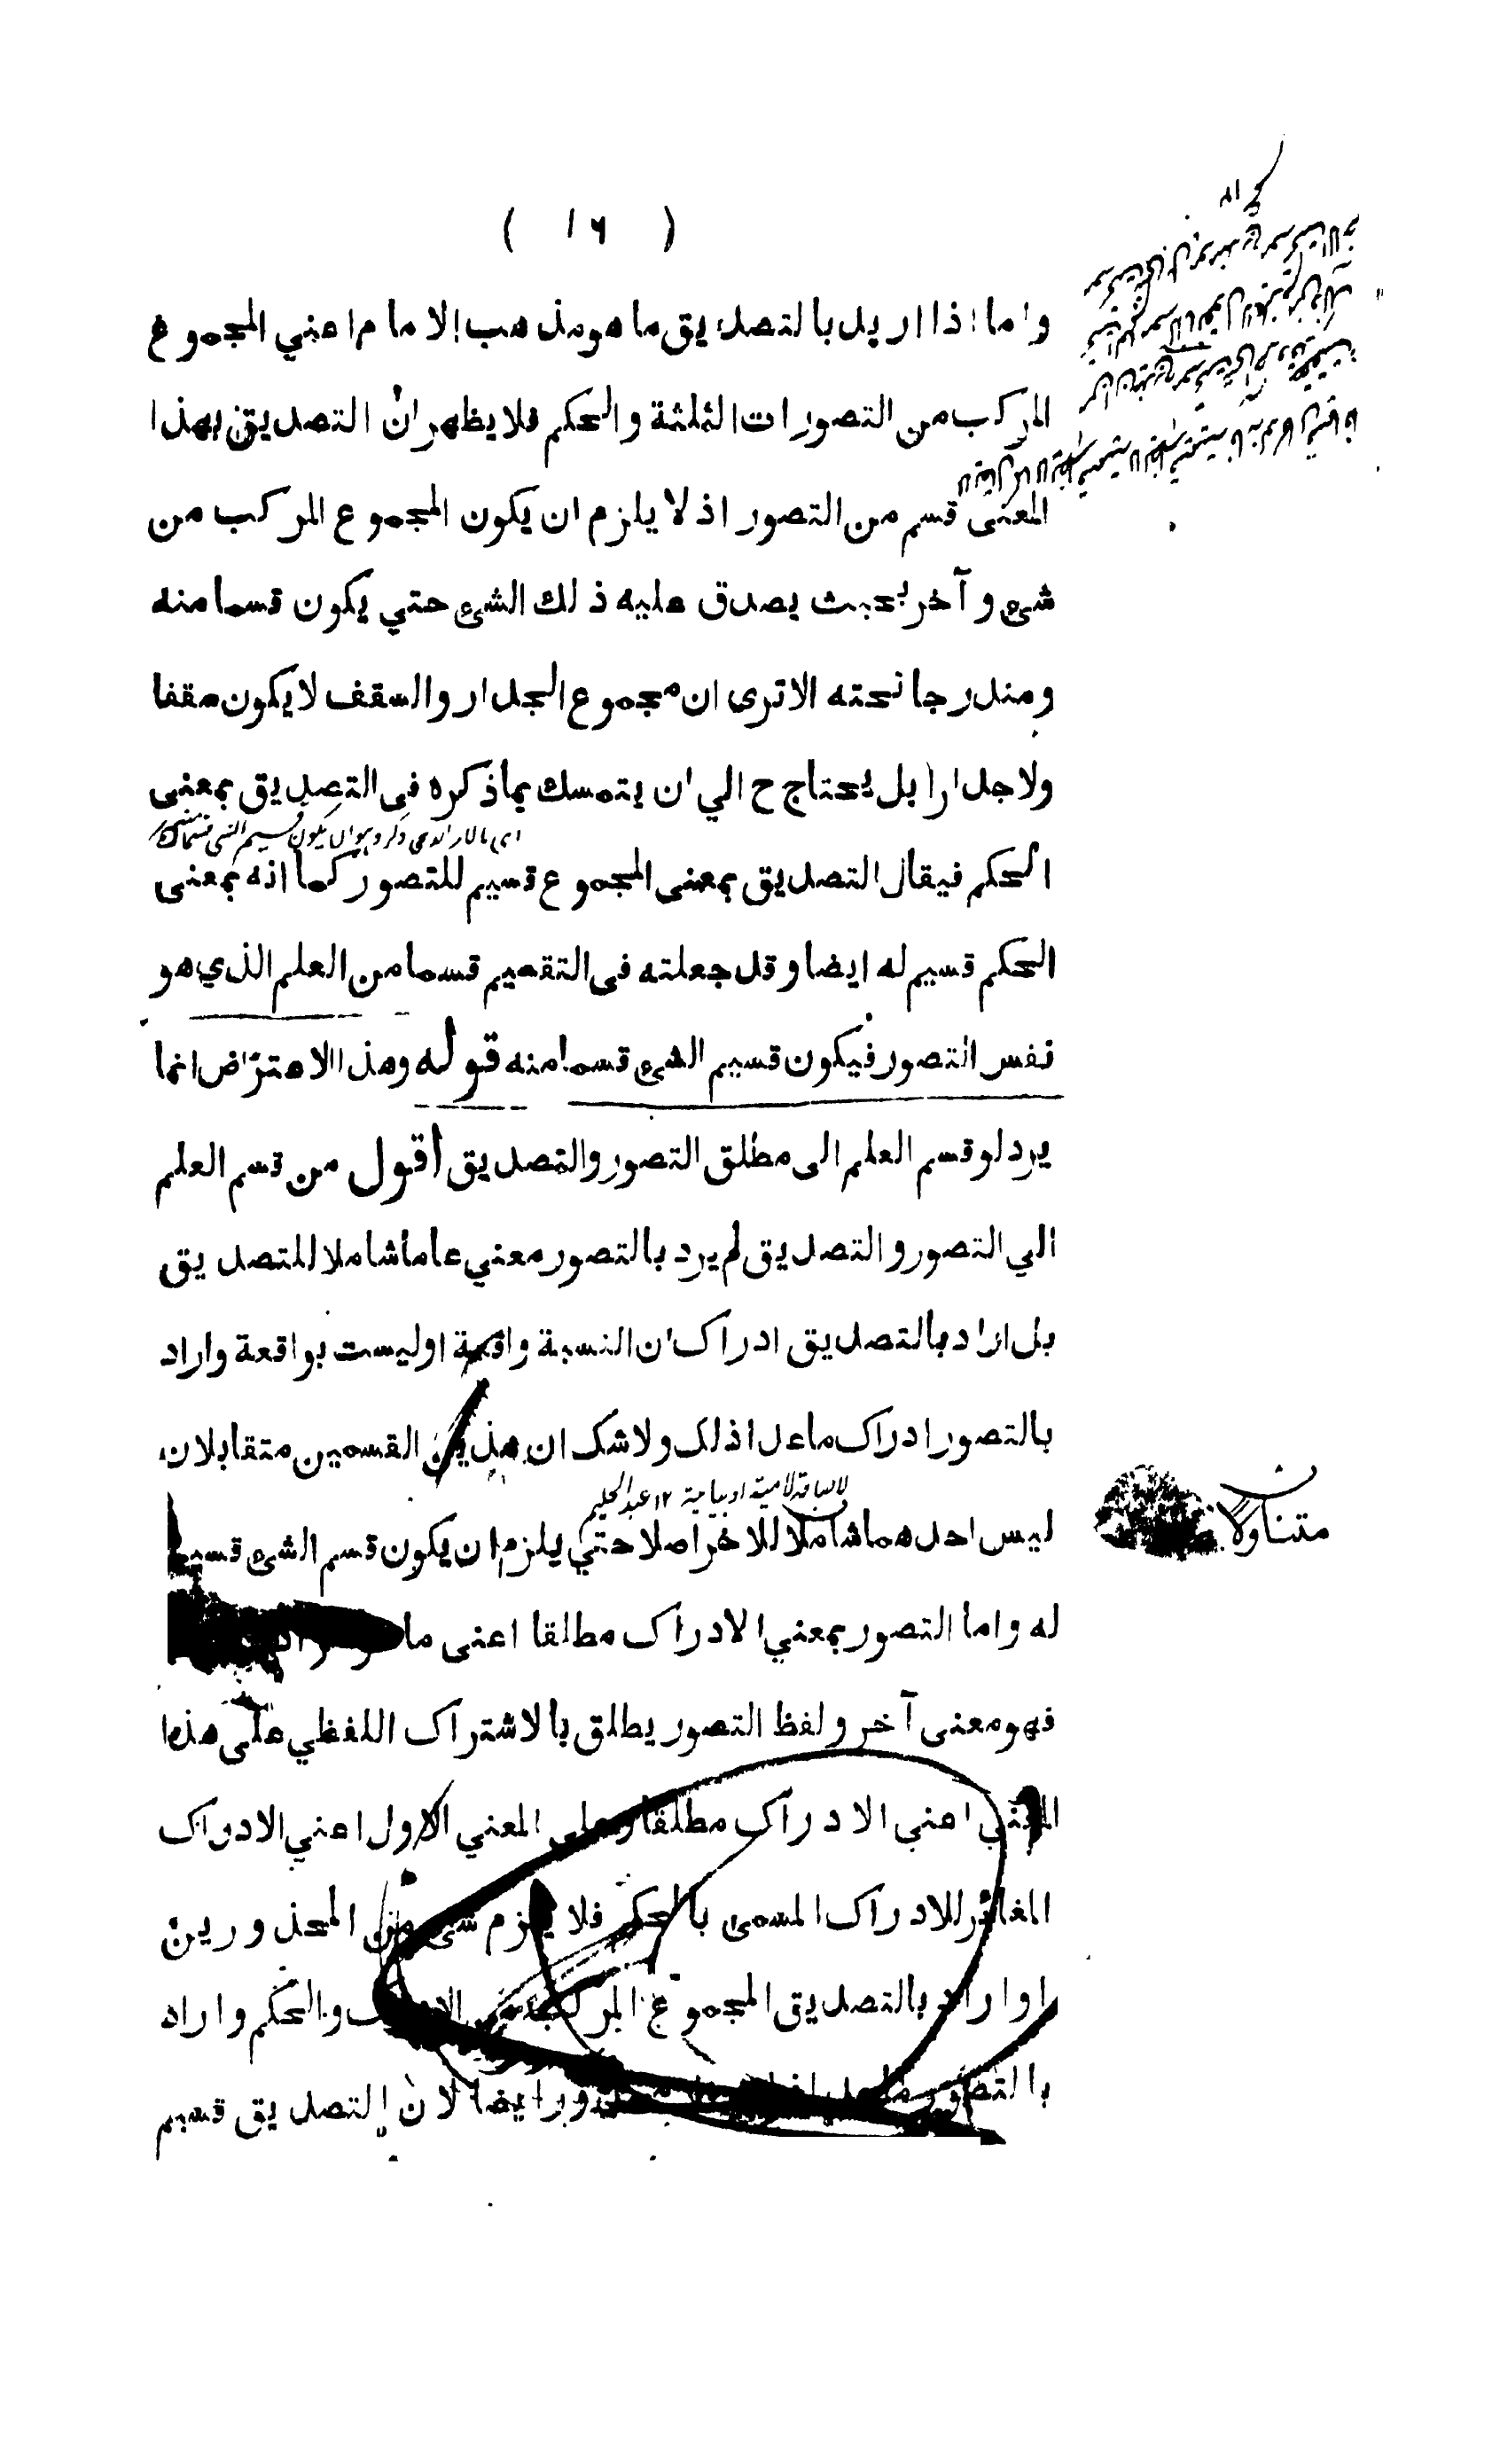 ( ١٦ )
واما اذا اريد بالتصديق ما هو مذهب الامام اعني المجموع
المركب من التصورات الثلثة والحكم فلا يظهر ان التصديق بهذا
المعنى قسم من التصور اذ لا يلزم ان يكون المجموع المركب من
شئ وآخر بحيث يصدق عليه ذلك الشئ حتي يكون قسما منه
ومندرجا تحته الا ترى ان مجموع الجدار والسقف لا يكون سقفا
ولا جدارا بل يحتاج ح الي ان يتمسك بما ذكره فى التصديق بمعنى
الحكم فيقال التصديق بمعنى المجموع قسيم للتصور كما انه بمعنى
الحكم قسيم له ايضا وقد جعلته فى التقسيم قسما من العلم الذي هو
نفس التصور فيكون قسيم الشئ قسما منه قوله وهذا الاعتراض انما
يرد لو قسم العلم الى مطلق التصور والتصديق اقول من قسم العلم
الي التصور والتصديق لم يرد بالتصور معني عاما شاملا للتصديق
بل اراد بالتصديق ادراك ان النسبة واقعة او ليست بواقعة واراد
بالتصور ادراك ما عدا ذلك ولا شك ان هذين القسمين متقابلان
لا لسابقة لامية او بيانية ١٢ عبد الحليم
ليس احدهما شاملا للآخر اصلا حتي يلزم ان يكون قسم الشئ قسيما
متناولا
له واما التصور بمعني الادراك مطلقا اعنى ما
فهو معنى آخر ولفظ التصور يطلق بالاشتراك اللفظي على هذا
المعني اعني الادراك مطلقا وعلى المعني الاول اعني الادراك
المغائر للادراك المسمى بالحكم فلا يلزم شئ من المحذورين
او اراد بالتصديق المجموع المركب من والحكم واراد
بالتصور ايضا لان التصديق قسيم